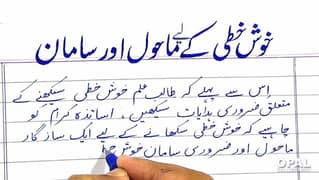 خوش خطی کے لیے ماحول اور سامان
اِس سے پہلے کہ طالب علم خوش خطی سیکھنے کے
متعلق ضروری ہدایات سیکھیں۔ اساتذہ کرام کو
چاہیے کہ خوش خطی سکھانے کے لیے ایک سازگار
ماحول اور ضروری سامان خوش
OPAL